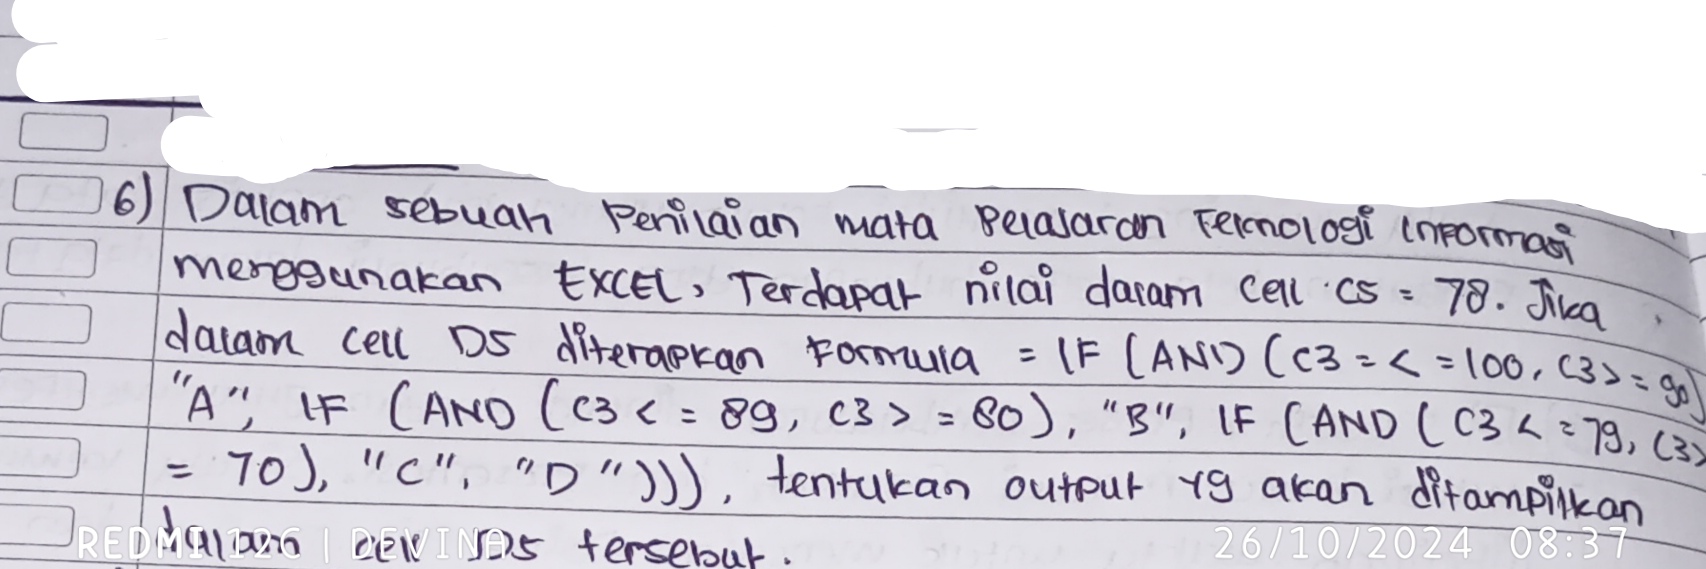 6) Dalam sebuah Penilaian mata Pelajaran Teknologi informasi
menggunakan EXCEL, Terdapat nilai dalam cell C5 = 78. Jika
dalam cell D5 diterapkan Formula = IF (AND (C3 = < = 100, C3 > = 90)
"A", IF (AND (C3 < = 89, C3 > = 80), "B", IF (AND (C3 < = 79, C3 >
= 70), "C", "D"))), tentukan output yg akan ditampilkan
dalam cell D5 tersebut.
REDMI 12C | DEVINA 26/10/2024 08:37